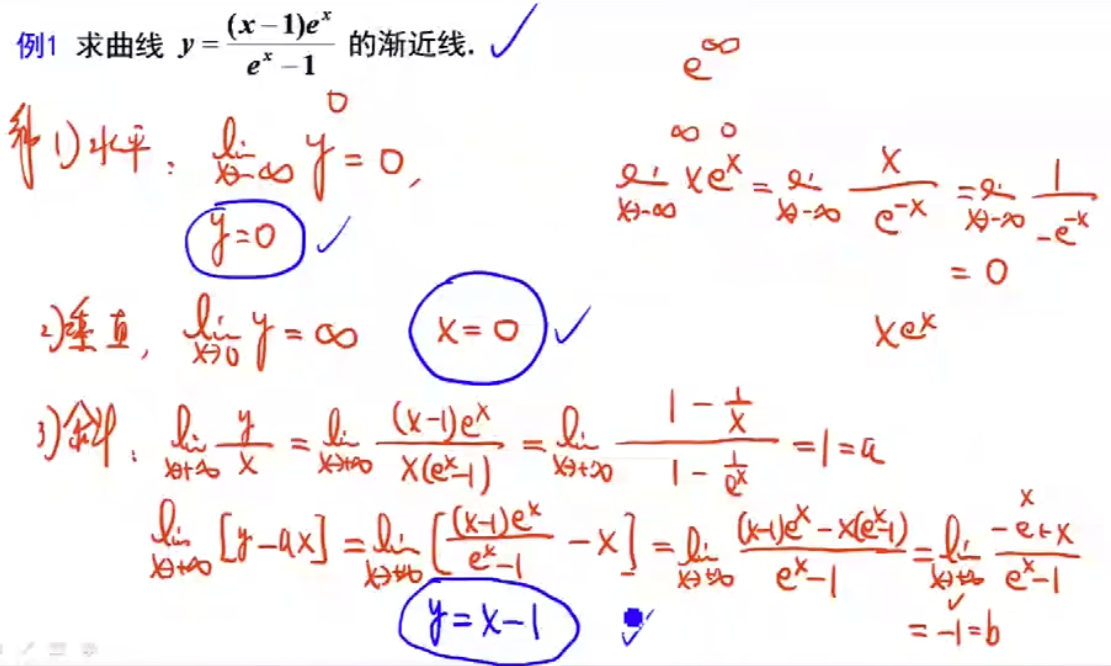 例1 求曲线 y = (x-1)e^x / (e^x - 1) 的渐近线.
e^∞
解 1) 水平: lim_{x→-∞} y = 0,
0
∞ 0
lim_{x→-∞} xe^x = lim_{x→-∞} x / e^{-x} = lim_{x→-∞} 1 / -e^{-x}
= 0
y=0
2) 垂直, lim_{x→0} y = ∞ x=0
xe^x
3) 斜: lim_{x→+∞} y/x = lim_{x→+∞} (x-1)e^x / x(e^x-1) = lim_{x→+∞} (1 - 1/x) / (1 - 1/e^x) = 1 = a
lim_{x→+∞} [y-ax] = lim_{x→+∞} [(x-1)e^x / (e^x-1) - x] = lim_{x→+∞} ((x-1)e^x - x(e^x-1)) / (e^x-1) = lim_{x→+∞} (-e^x+x) / (e^x-1)
= -1 = b
y=x-1